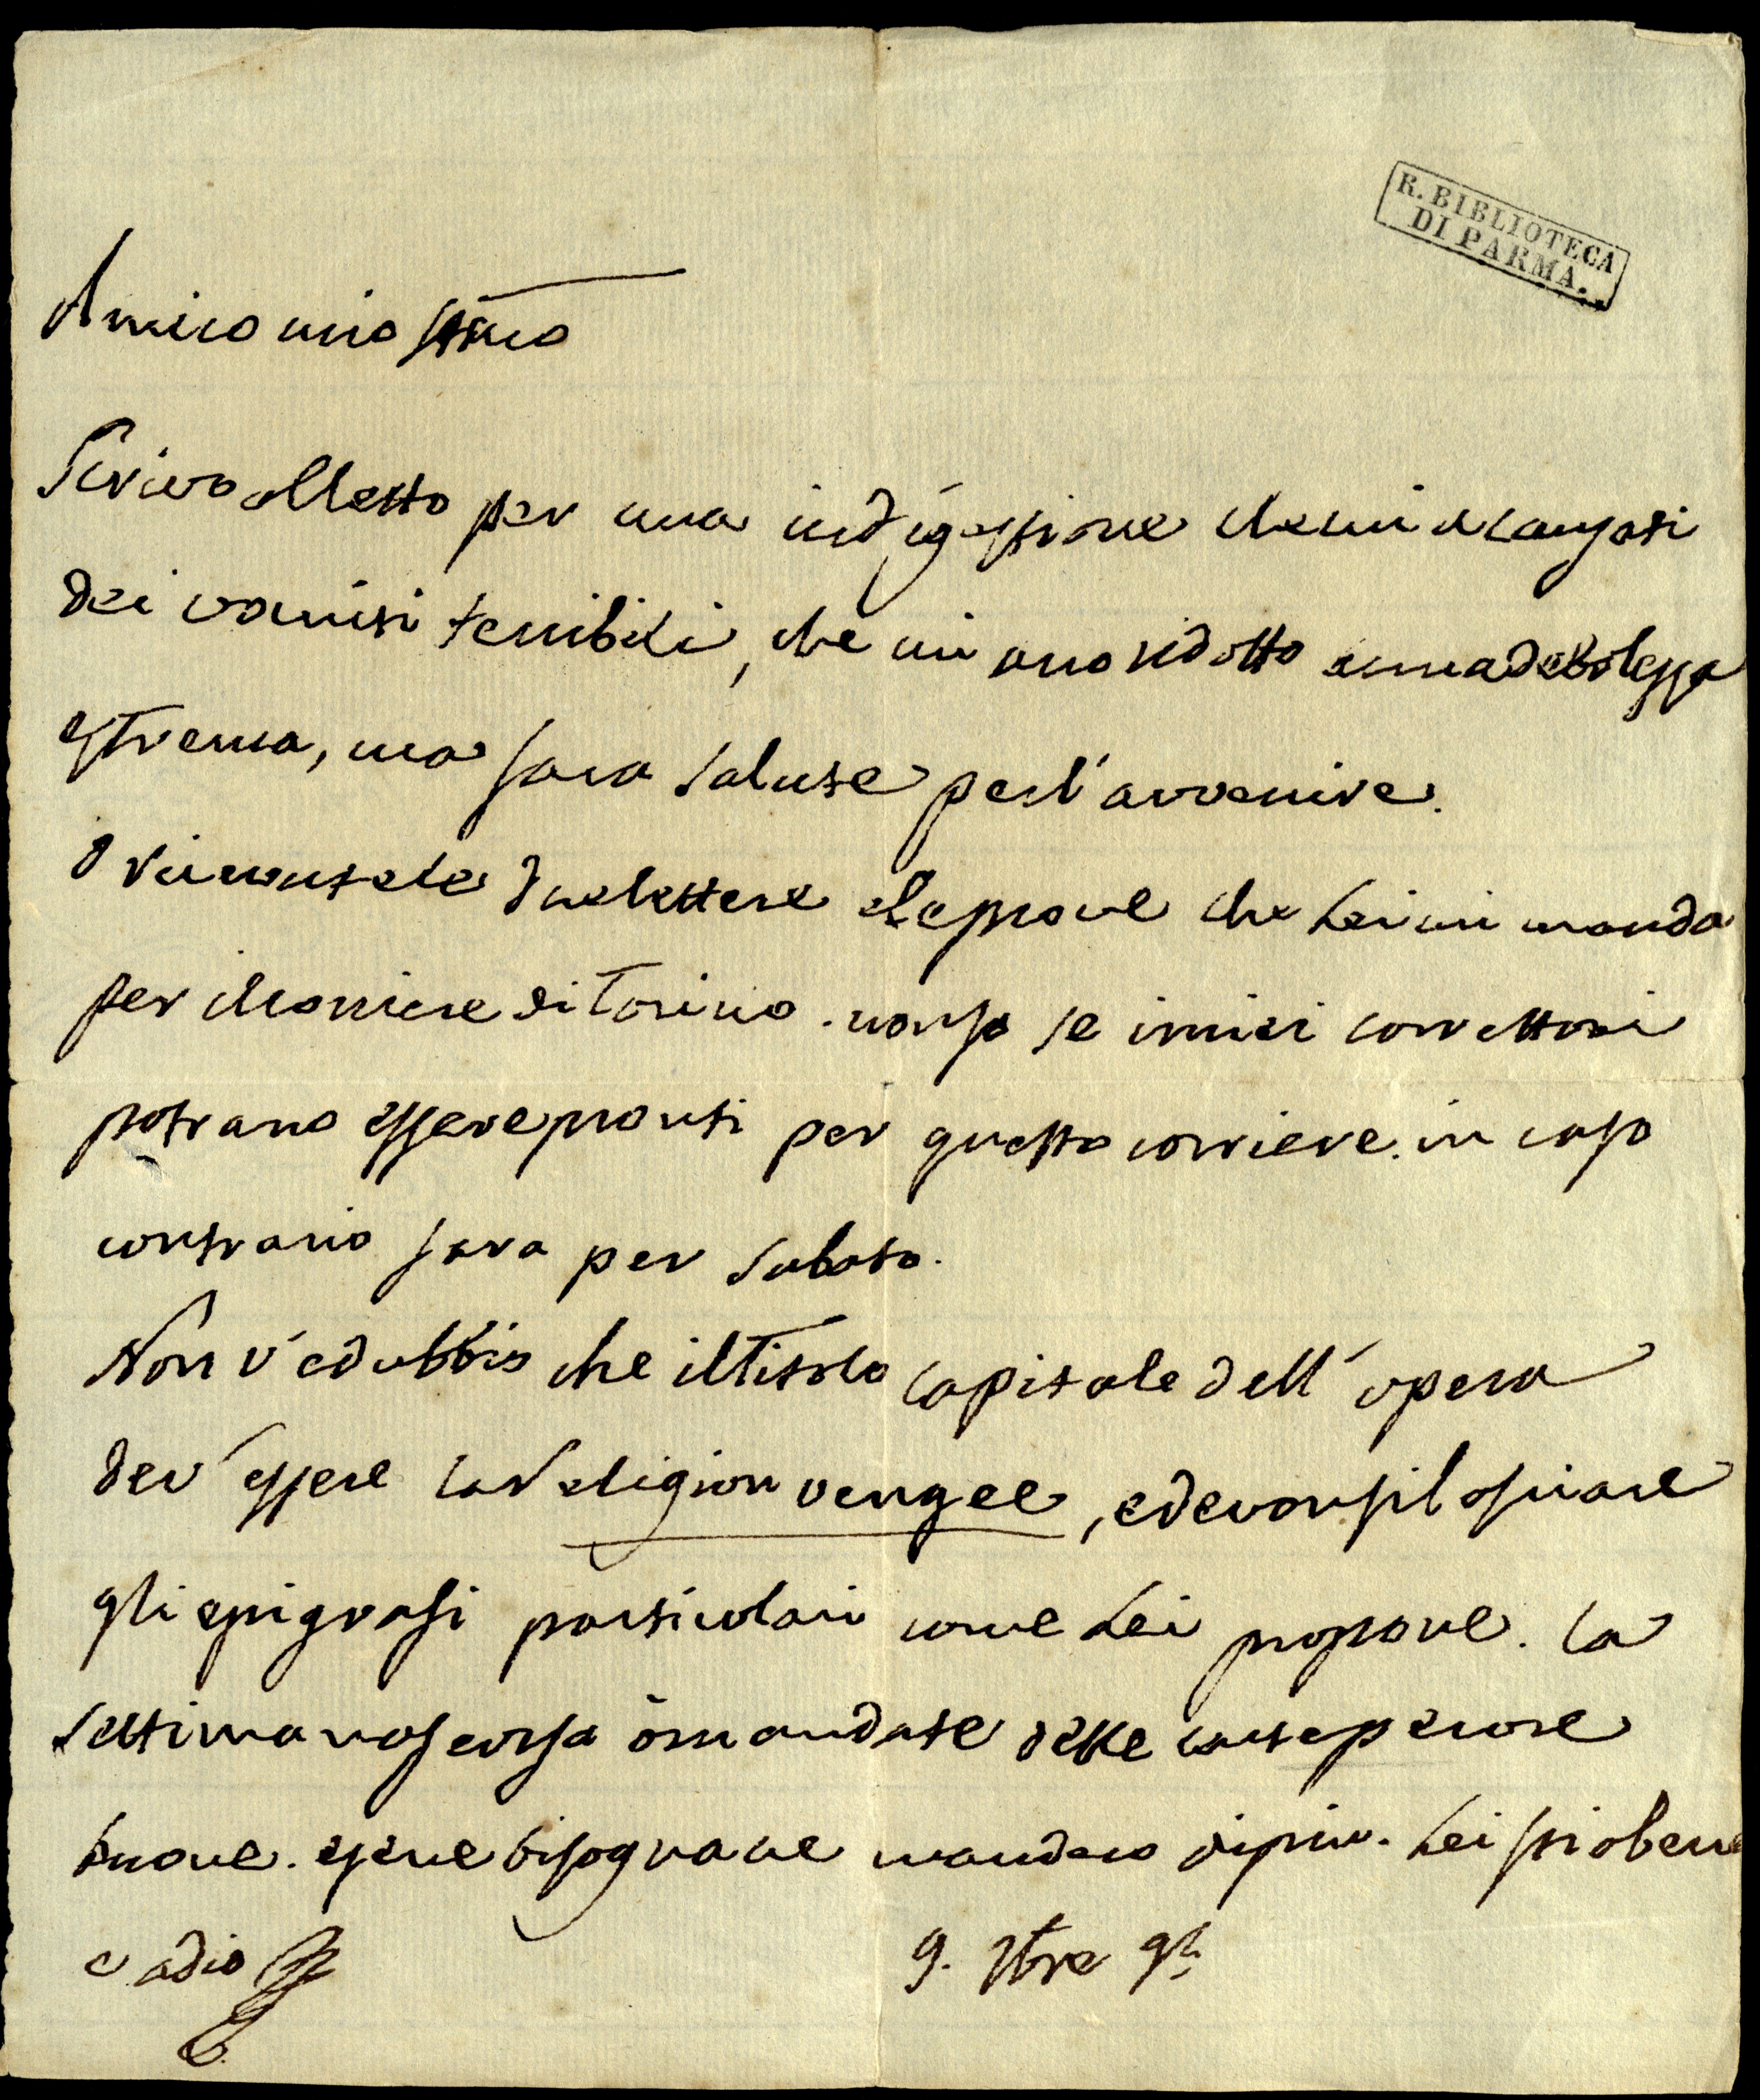 R. BIBLIOTECA
DI PARMA.
Amico mio stimo
Scrivo alletto per una indigestione che mi à causati
dei vomiti terribili, che mi ano ridotto a una debolezza
estrema, ma sara salute per l'avvenire.
ò ricevute le due lettere e le prove che Lei mi manda
per il corriere di Torino. non so se i miei correttori
potrano essere pronti per questo corriere. in caso
contrario sara per sabato.
Non v'è dubbio che il Titolo capitale dell'opera
dev'essere la Religion vengee, e devonsi lasciare
gli epigrafi particolari come Lei propone. la
settimana scorsa ò mandate delle carte pecore
buone. e se ne bisognane mandero di piu. Lei stia bene
e adio
9. 7bre 94